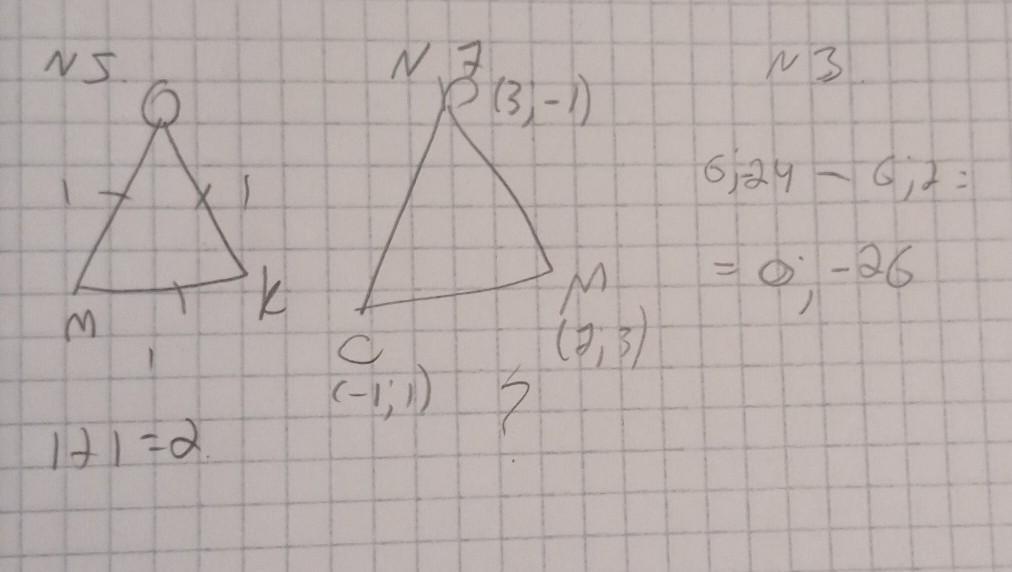 N5.
O
1 1
M K
1
1+1=2.
N7
P (3;-1)
C M
(-1;1) (2;3)
?
N3.
6;-24 - 6;2=
= 0; -26